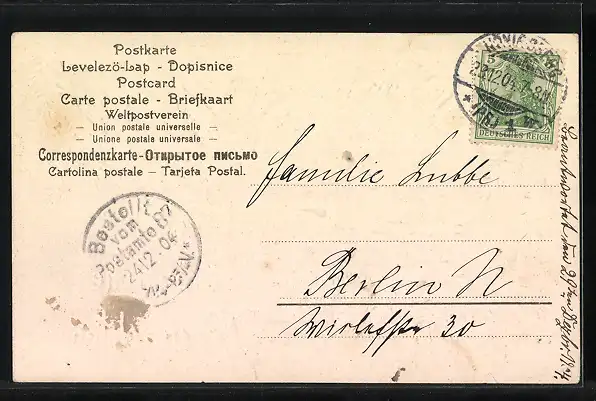 Postkarte
Levelezö-Lap - Dopisnice
Postcard
Carte postale - Briefkaart
Weltpostverein
- Union postale universelle -
- Unione postale universale -
Correspondenzkarte-Открытое письмо
Cartolina postale - Tarjeta Postal.
23.12.04. 7-8N
DEUTSCHES REICH
Familie Lubbe
Berlin N
30
Bestellt
vom
Postamte
24.12.04
Beantwortet den 29ten